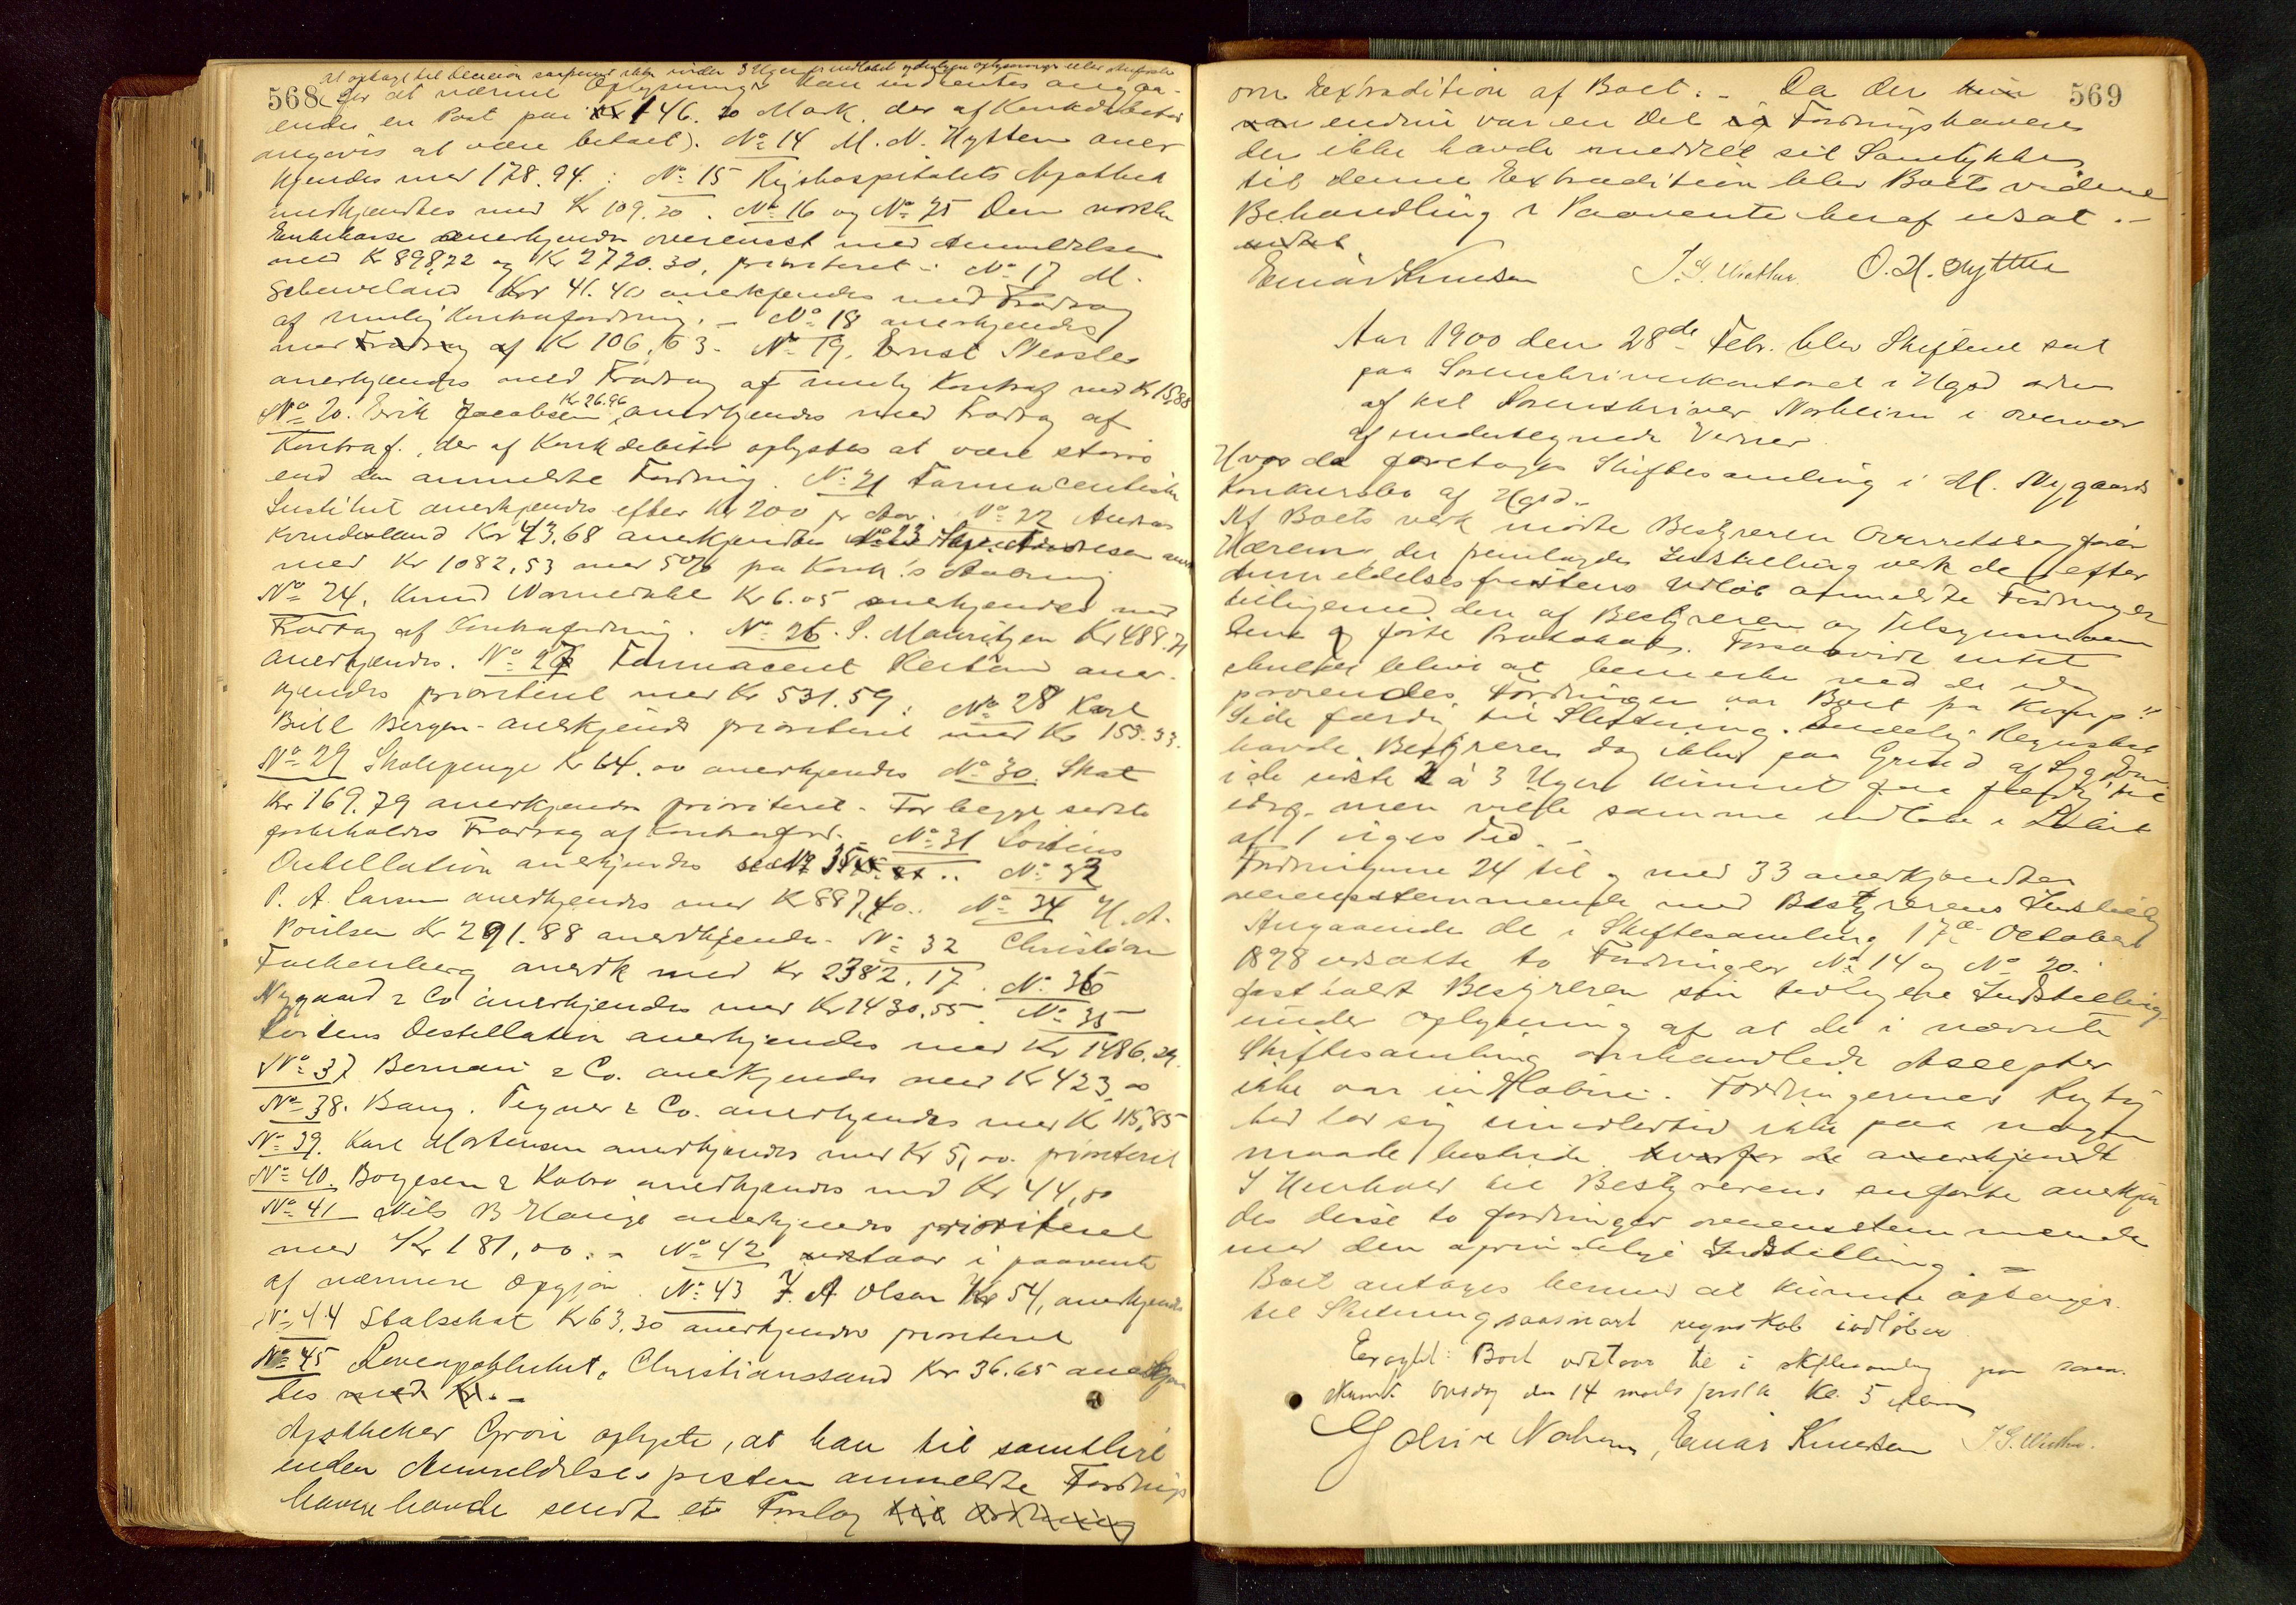 568
for at nærme Oplysninger kan indhentes angaa-
ende en Post paa 146. 20 Mark, der af Konkdebitor
angives at være betalt). No 14 M. N. Hytten aner
kjendes med 178.94. : No 15 Rigshospitalets Apothek
anerkjendtes med Kr 109.20. No 16 og No 25 Den norske
Enkekasse anerkjendes overensst med Anmeldelsen
med Kr 898,72 og Kr 2720.30, prioriteret - No 17 M.
Kr 41.40 anerkjendes med Fradrag
af mulig Kontrafordring. - No 18 anerkjendes
med Fradrag af Kr 106.63. No 19. Ernst
anerkjendes med Fradrag af mulig Kontraf med Kr 15,88
No 20. Erik Jacobsen Kr 26.96 anerkjendes med Fradrag af
Kontraf., der af Konkdebitor oplystes at være større
end den anmeldte Fordring. No 21 Farmaceutiske
Institut anerkjendes efter Kr 200 pr Aar. No 22 Andreas
Kr 43.68 anerkjendtes No 23
med Kr 1082,53 med 5% pa Konk's
No 24. Knud Kr 6.05 anerkjendes med
Fradrag af Kontrafordring. No 26. S. Mauritzen Kr 488.71
anerkjendes. No 27 Farmaceut aner-
kjendes prioriteret med Kr 531.59 : No 28 Karl
Bull Bergen - anerkjendes prioriteret med Kr 155.33.
No 29 Skolepenge Kr 64.00 anerkjendes No 30. Skat
Kr 169.79 anerkjendes prioriteret - For begge sidste
forbeholdes Fradrag af Kontraford. - No 31 Loitens
Destillation anerkjendes No 33
P. A. Larsen anerkjendes med Kr 887,40.. No 34 H. A.
Poulsen Kr 291.88 anerkjendes - No 32 Christian
Falkenberg anerk med Kr 2382.17. No 36
Nygaard & Co anerkjendes med Kr 1430.55. No 35
Loitens Destillation anerkjendes med Kr 1486.24.
No 37 & Co. anerkjendes med Kr 423,00
No 38. Bang. Tegner & Co. anerkjendes med Kr 115,85
No 39. Karl Mortensen anerkjendes med Kr 5,00 prioriteret
No 40. Borgesen & anerkjendes med Kr 44,80
No 41 Nils B Hauge anerkjendes prioriteret
med Kr 181,00. - No 42 udstaar i paavente
af nærmere Opgjør. No 43 J. A Olsen Kr 54, anerkjendes
No 44 Stalskat Kr 63.30 anerkjendes prioriteret
No 45 Christianssand Kr 36.65 anerkjen
tes med Kr. -
Apotheker Grøn oplyste, at han til samtlige
inden Anmeldelsesfristen anmeldte Fordrings
havere havde sendt et Forslag til Ordning
569
om Extradition af Boet. - Da der kun
var endnu var en Del Fordringshavere
der ikke havde meddelt sit Samtykke
til denne Extradition blev Boets videre
Behandling i Paavente heraf udsat. -
Einar Knudsen J. G. Wiethe O. H. Hytten
Aar 1900 den 28de Febr. blev Skifteret sat
paa Sorenskriverkontoret i Hgsd
af kst Sorenskriver Norheim i overvær
af undertegnede Vidner.
Hvor da foretoges Skiftesamling i M. Nygaards
Konkursbo af Hgsd.-
Af Boets vedk mødte Bestyreren Overretssagfører
Hærem, der fremlagde Indstilling vedk de efter
Anmeldelsesfristens Udløb anmeldte Fordringer
tilligemed den af Bestyreren og Tilsynsmanden
førte Protokol. Forsaavidt intet
bliver at bemerke med de idag
prøvendes Fordringer var Boet
Side færdig til Slutning. Endelig Regnskab
havde Bestyreren dog ikke paa Grund af Sygdom
i de sidste 2 à 3 Uger kunnet faa færdig til
idag, men vilde samme indløbe i Løbet
af 1 Uges Tid. -
Fordringerne 24 til og med 33 anerkjendtes
overensstemmende med Bestyrerens Indstilling
Angaaende de i Skiftesamling 17de October
1898 udsatte to Fordringer No 14 og No 20.
fastholdt Bestyreren sin tidligere Indstilling
under Oplysning af at de i nævnte
Skiftesamling omhandlede Accepter
ikke var indløbne. Fordringernes Rigtig
hed lod sig imidlertid ikke paa nogen
maade bestride hvorfor de anerkjendt
I Henhold til Bestyrerens anførte anerkjen
des disse to fordringer overensstemmende
med den oprindelige Indstilling. -
Boet antages hermed at kunne optages
til Slutning saasnart regnskab indløber
Eragtet: Boet udstaar til i skiftesamling paa soren.
skrivk. onsdag den 14 marts førstk Kl. 5 Aften
Norheim, Einar Knudsen J. G. Wiethe.